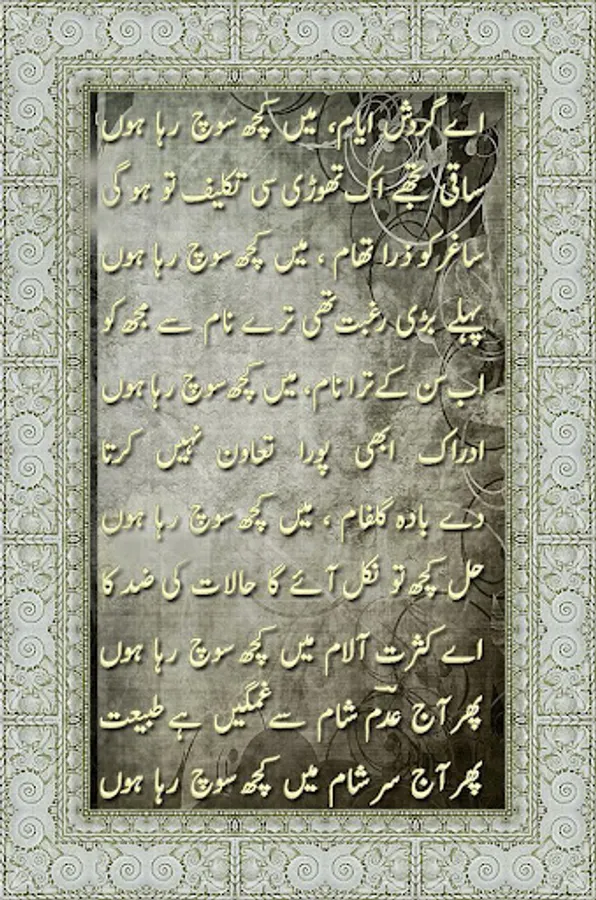 اے گردشِ ایام، میں کچھ سوچ رہا ہوں
ساقی تجھے اک تھوڑی سی تکلیف تو ہو گی
ساغر کو ذرا تھام ، میں کچھ سوچ رہا ہوں
پہلے بڑی رغبت تھی ترے نام سے مجھ کو
اب سن کے ترا نام، میں کچھ سوچ رہا ہوں
ادراک ابھی پورا تعاون نہیں کرتا
دے بادہ گلفام ، میں کچھ سوچ رہا ہوں
حل کچھ تو نکل آئے گا حالات کی ضد کا
اے کثرت آلام میں کچھ سوچ رہا ہوں
پھر آج عدمؔ شام سے غمگیں ہے طبیعت
پھر آج سر شام میں کچھ سوچ رہا ہوں